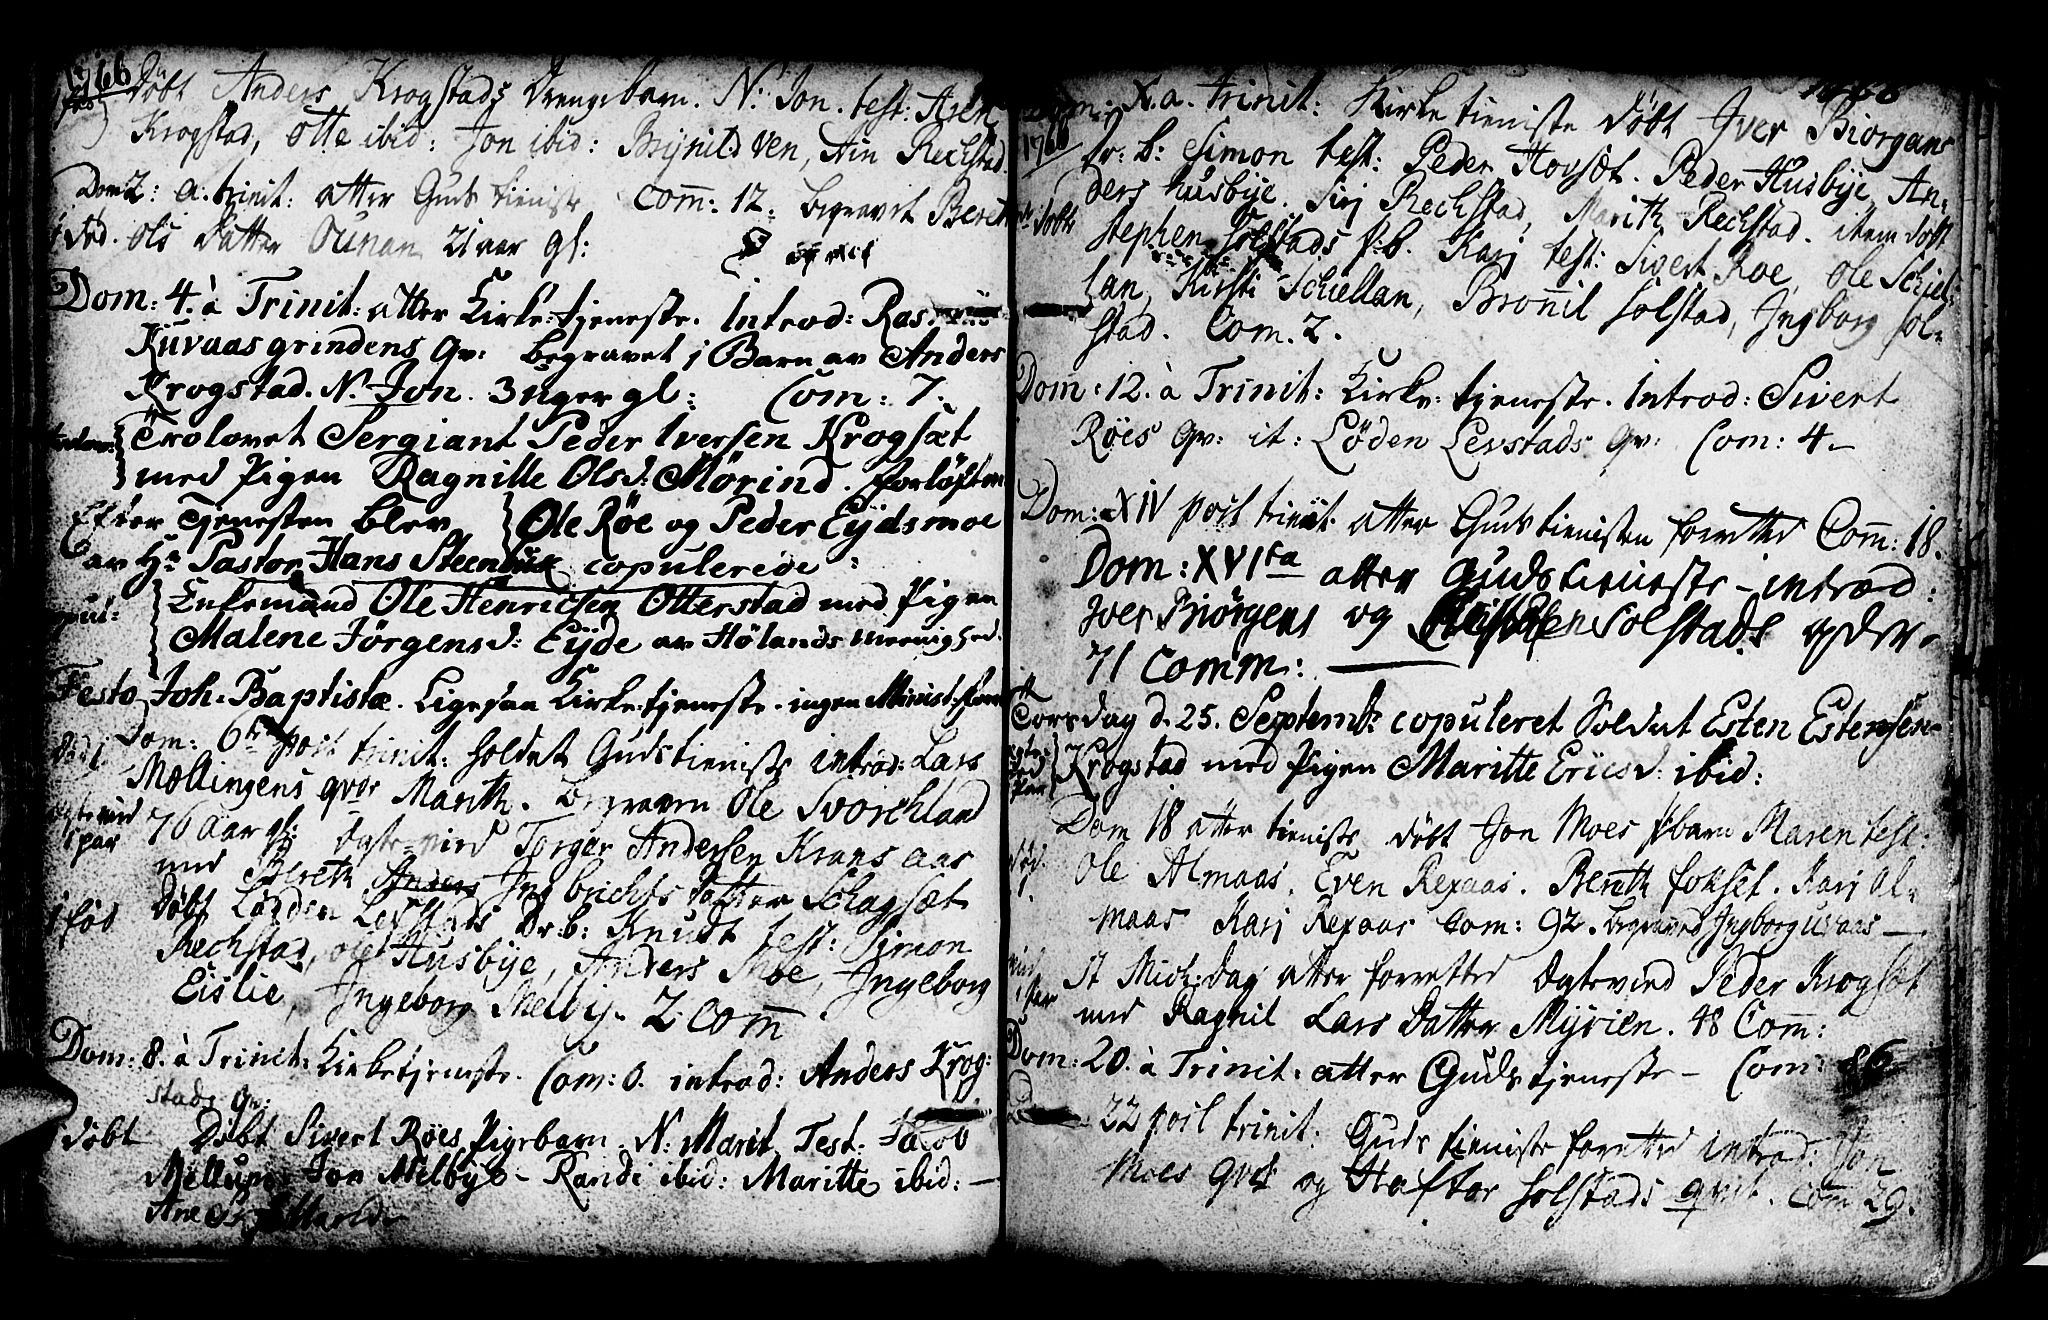 1766
Döbt Anders Krogstads Drengebarn. N: Jon. test: Aren
Krogstad, Otte ibid: Jon ibid: Brynild Ven, Ain Rechstad.
Dom 2: a. trinit: atter Guds tieniste Com: 12. begravet Berit
Ols datter Ounan 21 aar gl:
Dom: 4. à Trinit: atter Kirke-tjeneste. Introd: Ras
Kuvaasgrindens Qv: begravet 1 Barn av Anders
Krogstad. N. Jon. 3 uger gl: Com: 7.
Trolovet Sergiant Peder Iversen Krogsæt
med Pigen Ragnille Olsd: Mörind. forlöften
Ole Röe og Peder Eijdsmoe
Efter Tjenesten blev
av Hr. Pastor Hans Steenbuk copulerede
Enkemand Ole Henricsen Otterstad med Pigen
Malene Jörgensd: Eijde av Hölands menighed.
Festo Joh: Baptistæ. Ligesaa Kirke-tjeneste. ingen Minist:
Dom: 6te post trinit: holdet Gudstieniste introd: Lars
Mællingens qvor Marith. begraven Ole Svorchland
70 aar gl: Egte-vied Torger Andersen Krans aas
med Bereth Anders Ingbrichts datter Schagsæt
1 föd
Döbt Lödden Levstads Dr:b: Knudt test: Simon
Rechstad, ole Husbye, Anders Moe, Ingeborg
Eislie, Ingeborg Melbij. 2 Com
Dom: 8. à Trinit: Kirketjeneste. Com: 0. introd: Anders Krog:
stads Qv:
döbt Döbt Sivert Röes Pigebarn. N: Marit Test: Jacob
Mellum Jon Melbye - Randi ibid: Maritte ibid: -
Ane
Dom: X. a. Trinit: Kirke tieniste döbt Iver Biorgans
1766
Dr: b: Simon test: Peder Hovsæt. Peder Husbije, An-
ders husbije. Sirj Rechstad, Marith Rechstad. item döbt
Stephen Solstads P:b. Karj test: Sivert Roe, Ole Schiel-
lan, Kirsti Schiellan, Bronnil Solstad, Ingborg Sol-
stad. Com. 2.
Dom: 12. à Trinit: Kirke-tjeneste. Introd: Sivert
Röes Qv: it: Löden Levstads Qv: Com: 4-
Dom: XIV post trinit: atter Gudstienisten forrettet Com: 18.
Dom: XVIta atter Gudstieneste - introd:
Iver Biörgens og Solstads
71 Comm:
Torsdag d. 25. Septembr: copuleret Soldat Esten Estensen
Krogstad med Pigen Maritte Ericsd: ibid:
Dom 18 atter tieniste döbt Jon Moes P:barn Maren test:
Ole Almaas. Even Rexaas. Berith foxset. Karj Al-
maas Karj Rexaas Com: 92. begraved Ingborg uvaas -
St Mich: dag atter forretted Egtevied Peder Krogsæt
med Ragnil Lars Datter Myrien. 48 Com:
Dom: 20. à Trinit: atter Gudstjeneste - Com: 86
22 post trinit: Guds tieniste forretted introd: Jon
Moes qvi og Haftor Solstads qvi. Com 29.